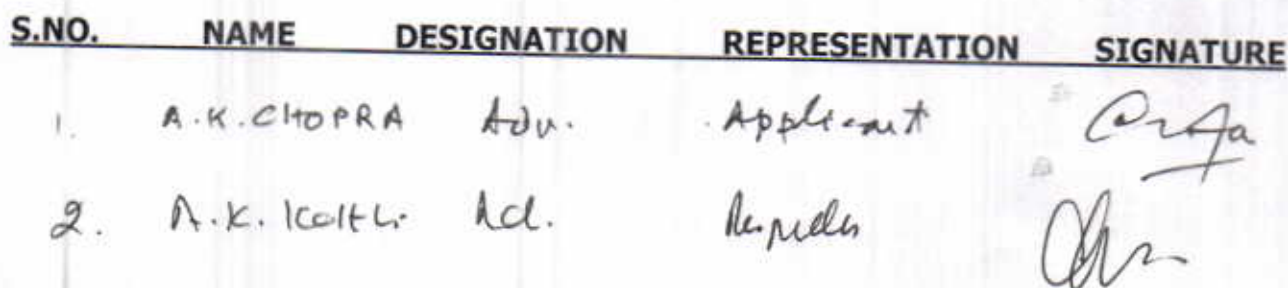 S.NO. NAME DESIGNATION REPRESENTATION SIGNATURE
1. A.K. CHOPRA Adv. Applicant
2. A.K.